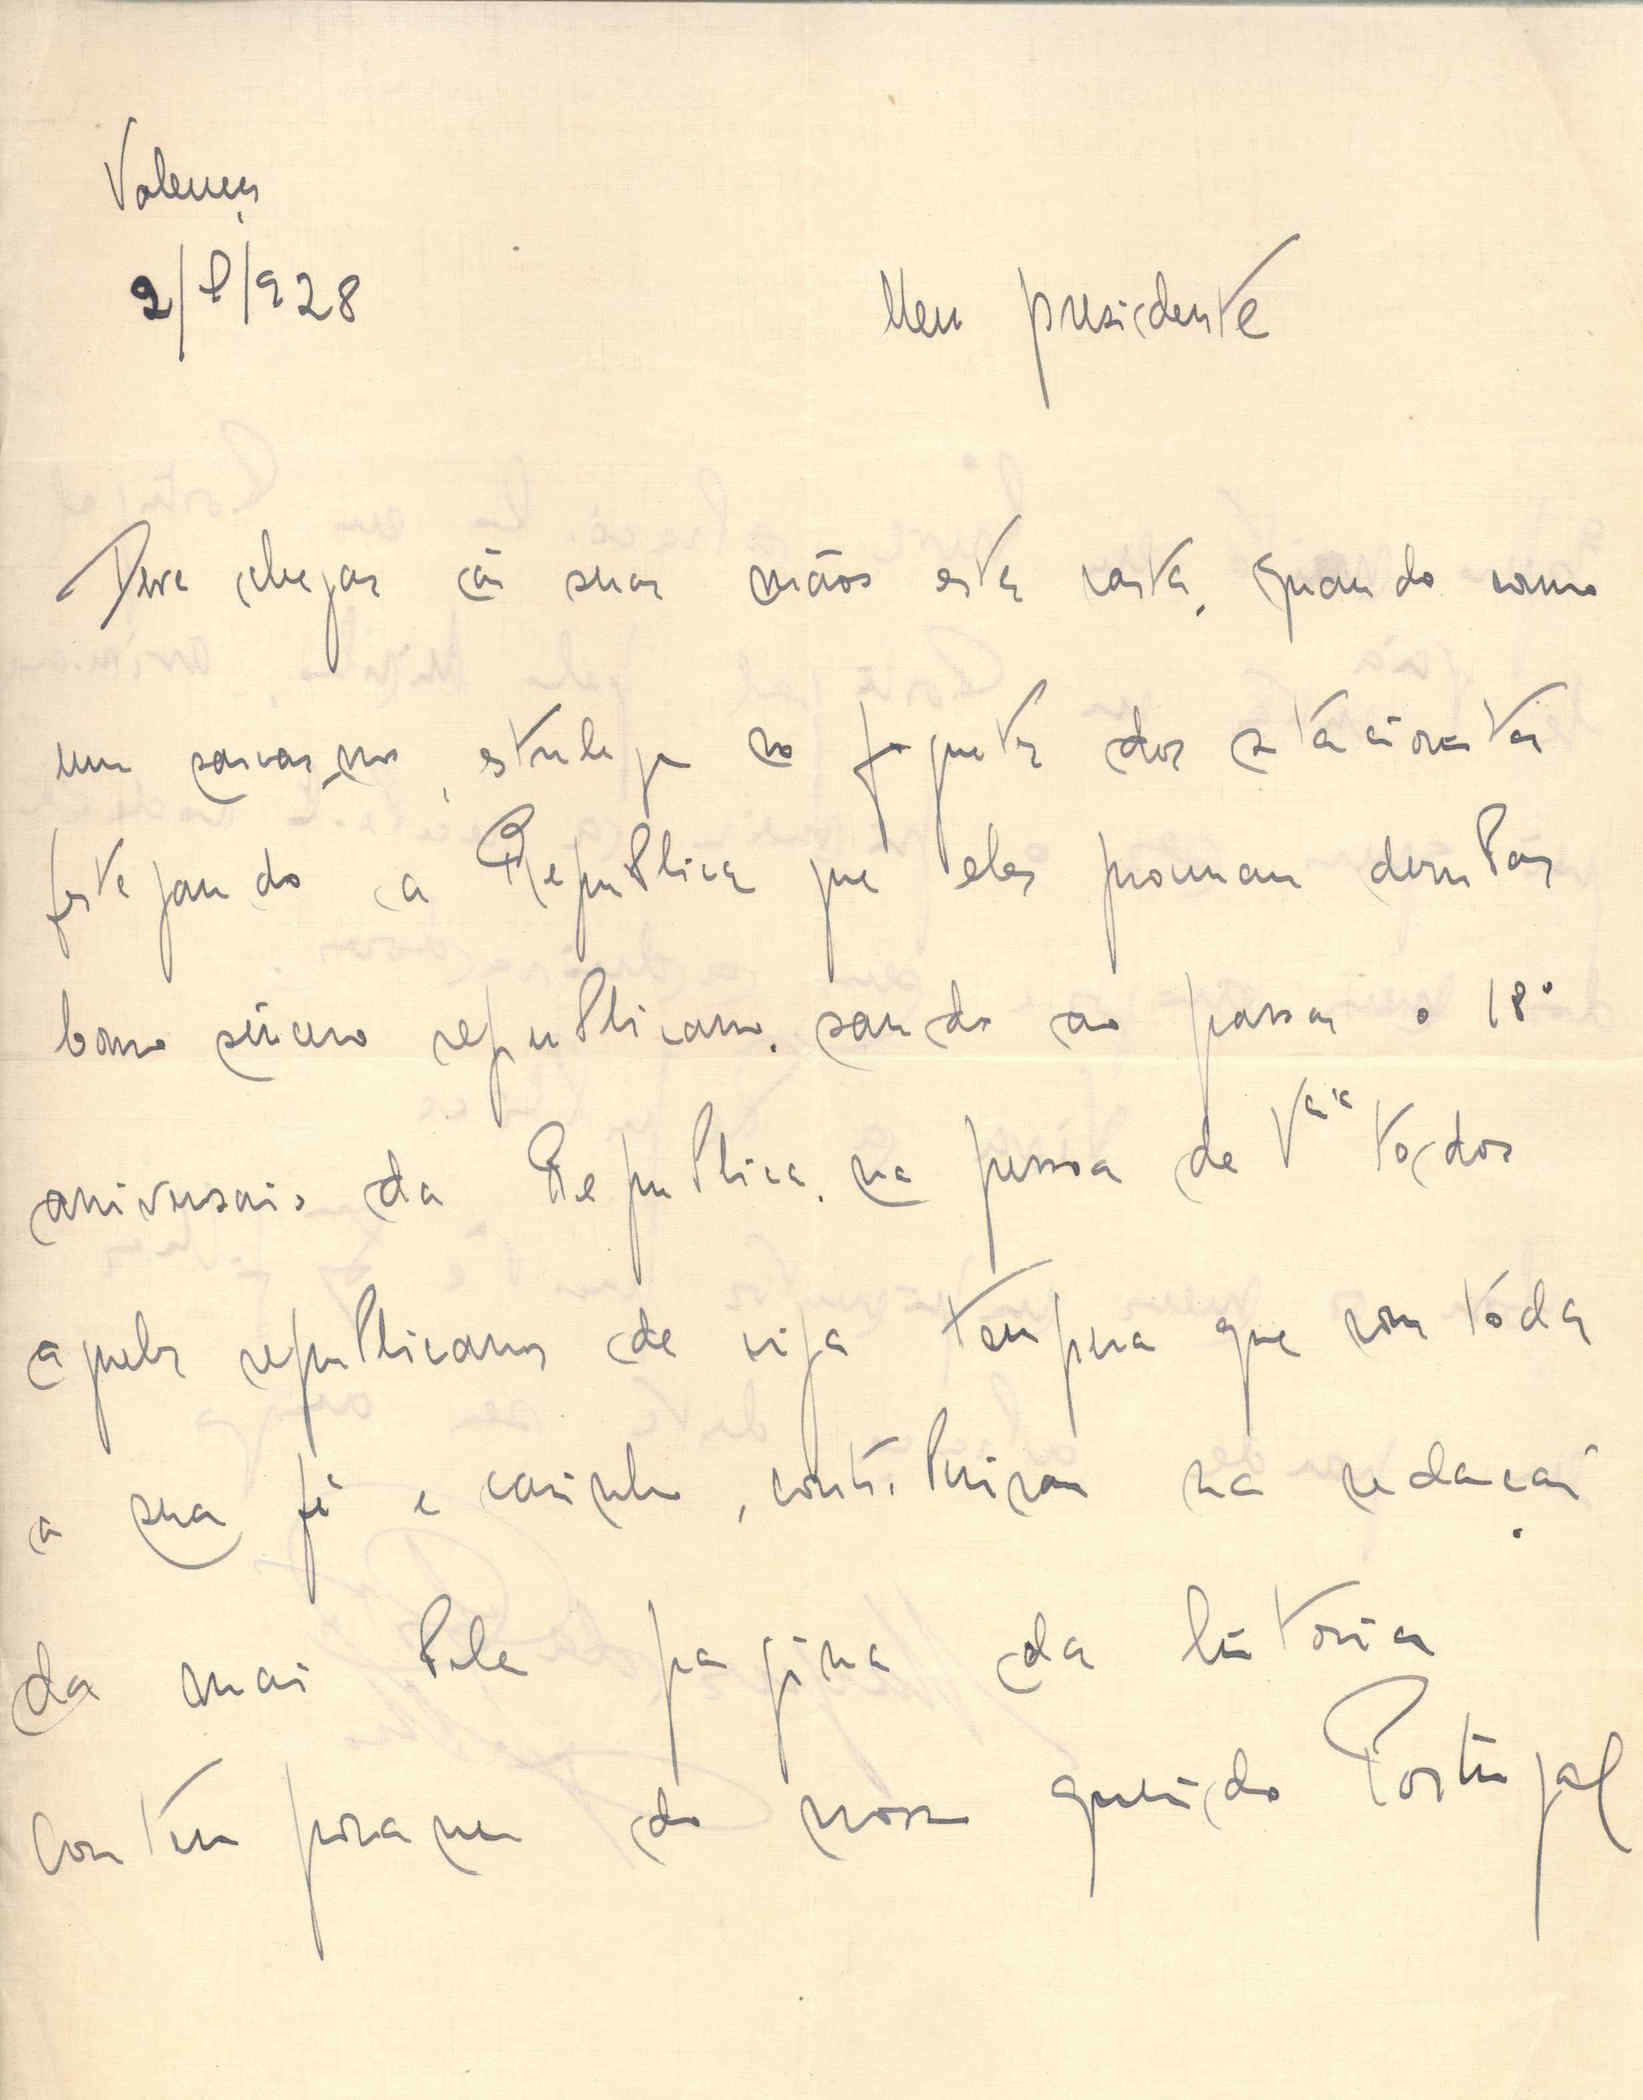 Valença
2/8/928
Meu presidente
Deve chegar ás suas mãos esta carta, quando como
um sarcasmo, estraleja o foguete dos situacionistas
festejando a Republica que eles procuram derrubar
bom sincero republicano, saudo ao passar o 18º
aniversario da Republica, na pessoa de Vª Exª todos
aqueles republicanos de rija tempera que com tôda
a sua fé e carinho, contribuiram na redação
da mais bela pagina da historia
Contemporanea do nosso querido Portugal